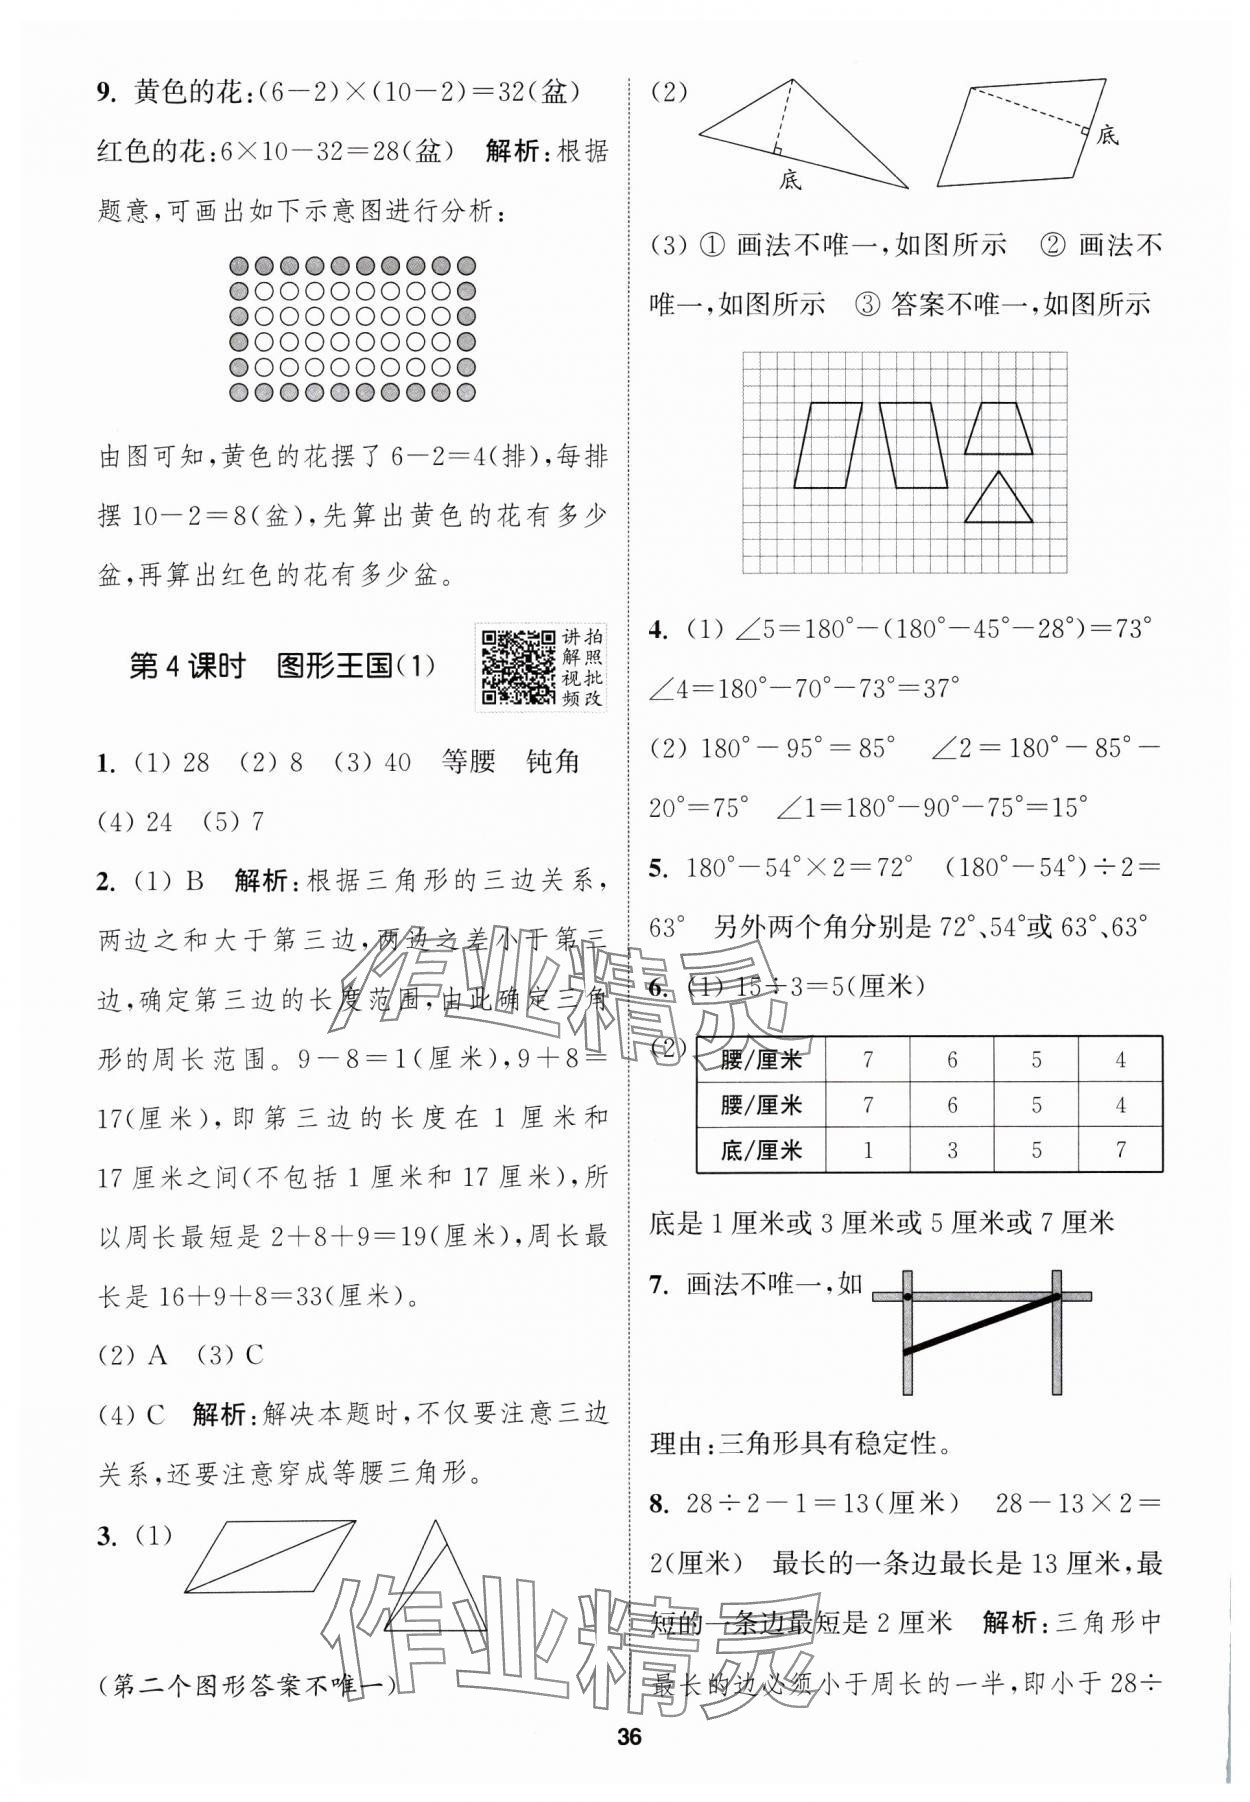 9. 黄色的花:(6－2)×(10－2)＝32(盆)
红色的花:6×10－32＝28(盆) 解析:根据
题意,可画出如下示意图进行分析:
由图可知,黄色的花摆了 6－2＝4(排),每排
摆 10－2＝8(盆),先算出黄色的花有多少
盆,再算出红色的花有多少盆。
第 4 课时 图形王国(1)
讲拍
解照
视批
频改
1. (1) 28 (2) 8 (3) 40 等腰 钝角
(4) 24 (5) 7
2. (1) B 解析:根据三角形的三边关系,
两边之和大于第三边,两边之差小于第三
边,确定第三边的长度范围,由此确定三角
形的周长范围。9－8＝1(厘米),9＋8＝
17(厘米),即第三边的长度在 1 厘米和
17 厘米之间(不包括 1 厘米和 17 厘米),所
以周长最短是 2＋8＋9＝19(厘米),周长最
长是 16＋9＋8＝33(厘米)。
(2) A (3) C
(4) C 解析:解决本题时,不仅要注意三边
关系,还要注意穿成等腰三角形。
3. (1)
(第二个图形答案不唯一)
(2)
底
底
(3) ① 画法不唯一,如图所示 ② 画法不
唯一,如图所示 ③ 答案不唯一,如图所示
4. (1) ∠5＝180°－(180°－45°－28°)＝73°
∠4＝180°－70°－73°＝37°
(2) 180°－95°＝85° ∠2＝180°－85°－
20°＝75° ∠1＝180°－90°－75°＝15°
5. 180°－54°×2＝72° (180°－54°)÷2＝
63° 另外两个角分别是 72°、54°或 63°、63°
6. (1) 15÷3＝5(厘米)
(2)
腰/厘米 7 6 5 4
腰/厘米 7 6 5 4
底/厘米 1 3 5 7
底是 1 厘米或 3 厘米或 5 厘米或 7 厘米
7. 画法不唯一,如
理由:三角形具有稳定性。
8. 28÷2－1＝13(厘米) 28－13×2＝
2(厘米) 最长的一条边最长是 13 厘米,最
短的一条边最短是 2 厘米 解析:三角形中
最长的边必须小于周长的一半,即小于 28÷
36
作业精灵
作业精灵